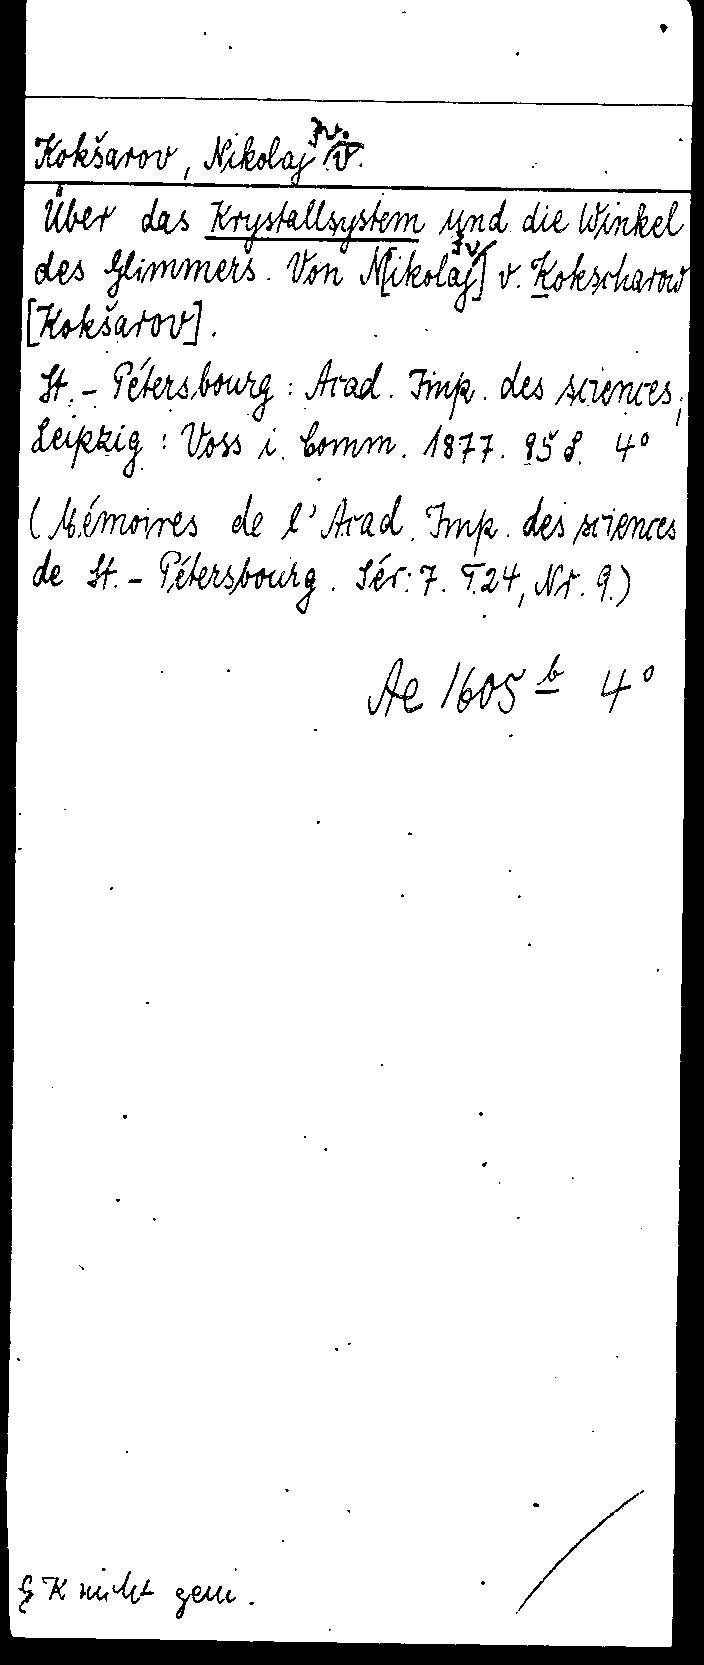 Kokšarov, Nikolaj Iv. v.
Über das Krystallsystem und die Winkel
des Glimmers. Von N[ikolaj Iv.] v. Kokscharow
[Kokšarov].
St.-Pétersbourg: Acad. Imp. des sciences;
Leipzig: Voss i. Comm. 1877. 95 S. 4°
(Mémoires de l'Acad. Imp. des sciences
de St.-Pétersbourg. Sér. 7. T. 24, Nr. 9.)
Ae 1605 b 4°
GK nicht gem.